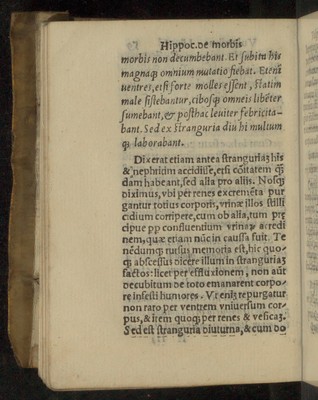 Hippoc.de morbis
morbis non decumbebant. Et subita his
magnaq; omnium mutatio fiebat. Etenī
uentres, etsi forte molles essent, statim
male sistebantur, cibosq; omneis libēter
sumebant, & posthac leuiter febricita-
bant. Sed ex stranguria diu hi multum
q; laborabant.
Dixerat etiam antea stranguriaʒ his
& nephritim accidisse, etsi
dam habeant, sed alia pro aliis. Nosq;
diximus, vbi per renes excremēta pur
gantur totius corporis, vrinæ illos stilli
cidium corripere, cum ob alia, tum prę
cipue pp confluentium vrinaʒ acredi
nem, quæ etiam nūc in caussa fuit. Te
nēdumq; rursus memoria est, hic quo-
q; abscessus dicere illum in stranguriaʒ
factos: licet per effluxionem, non aūt
decubitum de toto emanarent corpo-
re infesti humores. Vt enīʒ repurgatur
non raro per ventrem vniuersum cor-
pus, & item quoq; per renes & vesicaʒ.
Sed est stranguria diuturna, & cum do